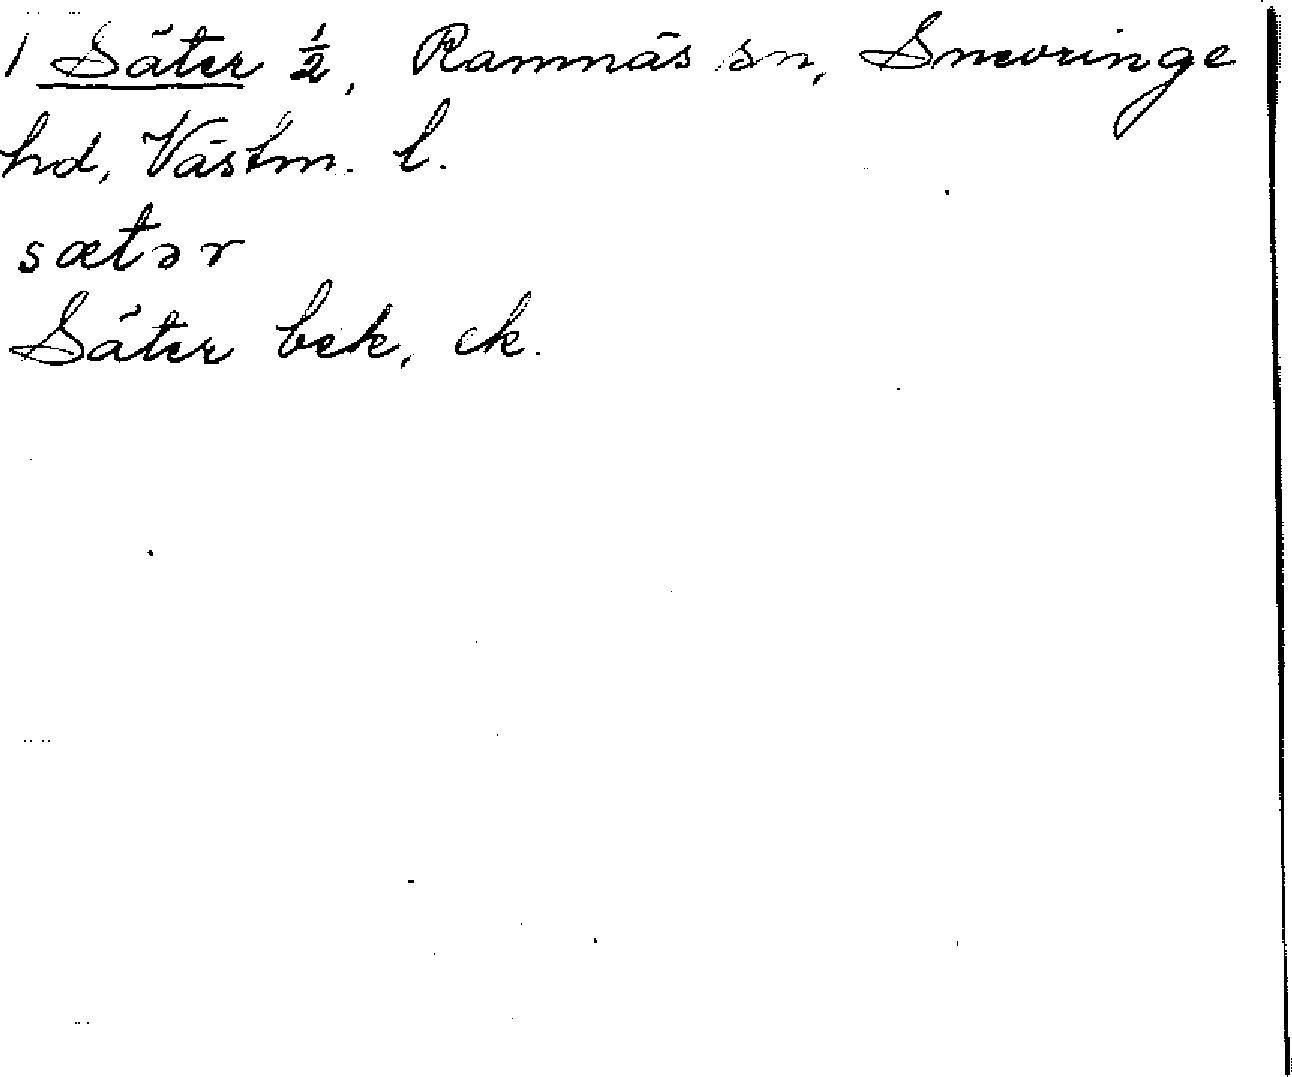 1 Säter ½, Ramnäs sn, Snevringe
hd, Västm. l.
sætər
Säter bek, ek.